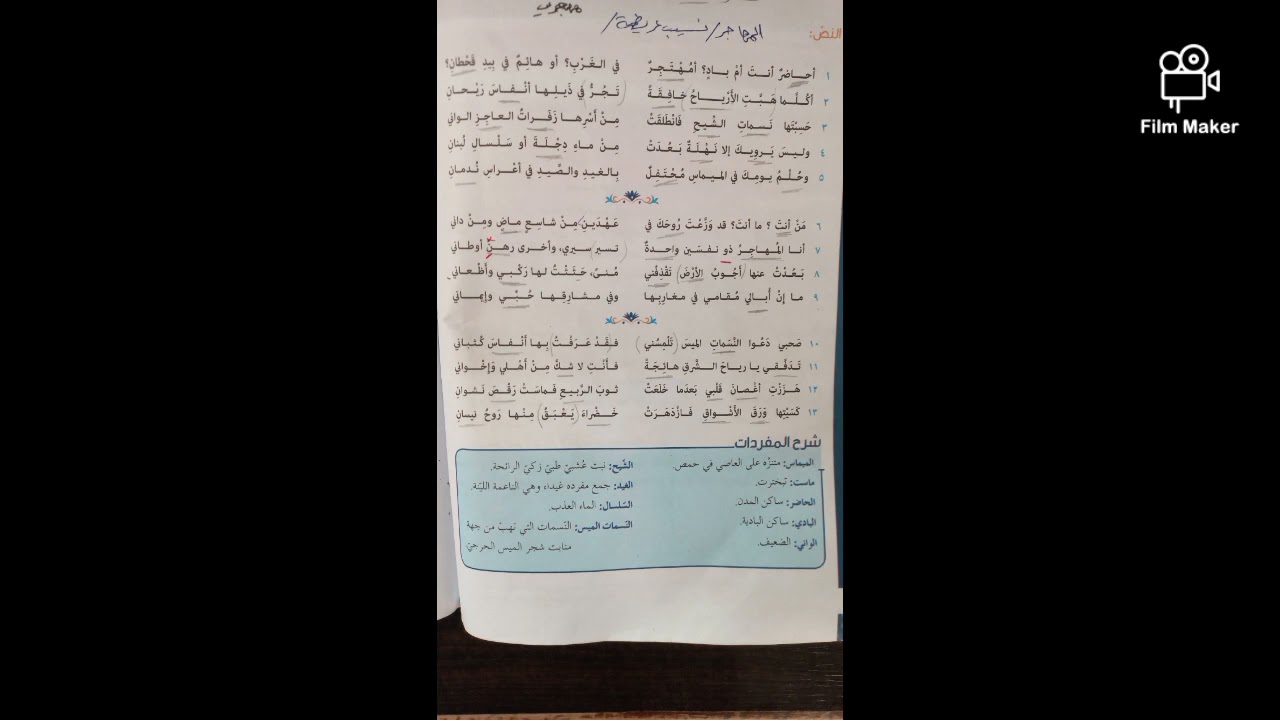 مهجري
النص:
المهاجر / نسيب عريضة /
١ أحاضرٌ أنتَ أمْ بادٍ؟ أمُهْتَجِرٌ في الغَرْبِ؟ أو هائِمٌ في بِيدِ قَحْطانِ؟
٢ أكُلَّما هَبَّتِ الأرْياحُ خافِقَةً تَجُرُّ في ذَيلِها أنْفاسَ رَيْحانِ
٣ حَسِبْتَها نَسَماتِ الشِّيحِ فَانْطَلَقَتْ مِنْ أسْرِها زَفَراتُ العاجِزِ الواني
٤ وليسَ يَروِيكَ إلا نَهْلَةٌ بَعُدَتْ مِنْ ماءِ دِجْلَةَ أو سَلْسالِ لُبنانِ
٥ وحُلْمُ يومِكَ في الميماسِ مُحْتَفِلٌ بِالغيدِ والصِّيدِ في أعْراسِ نُدمانِ
٦ مَنْ أنتَ؟ ما أنتَ؟ قد وَزَّعْتَ رُوحَكَ في عَهْدَينِ مِنْ شاسِعٍ ماضٍ ومِنْ داني
٧ أنا المُهاجِرُ ذو نفسَين واحدةٌ تسير سيري، وأخرى رهنُ أوطاني
٨ بَعُدْتُ عنها أجُوبُ الأرْضَ تَقْذِفُني مُنىً، حَثَثْتُ لها رَكْبي وأظْعاني
٩ ما إنْ أُبالي مُقامي في مغارِبِها وفي مشارِقِها حُبّي وإيماني
١٠ صَحبي دَعُوا النَّسَماتِ الميسَ تَلْمِسُني فقَدْ عَرَفْتُ بِها أنْفاسَ كُثباني
١١ تَدَفَّقي يا رياحَ الشَّرقِ هائِجَةً فأنْتِ لا شكَّ مِنْ أهْلي وَإخْواني
١٢ هَزَزْتِ أغْصانَ قَلْبي بَعدَما خَلَعَتْ ثوبَ الرَّبيعِ فَماسَتْ رَقْصَ نَشوانِ
١٣ كَسَيْتِها وَرَقَ الأشْواقِ فَازْدَهَرَتْ خَضْراءَ يَعْبَقُ مِنْها رَوحُ نيسانِ
شرح المفردات
الميماس: متنزّه على العاصي في حمص.
ماست: تبخترت.
الحاضر: ساكن المدن.
البادي: ساكن البادية.
الواني: الضعيف.
الشّيح: نبت عُشبيّ طبيّ زكيّ الرائحة.
الغيد: جمع مفرده غيداء وهي الناعمة الليّنة.
السّلسال: الماء العذب.
النّسمات الميس: النّسمات التي تهبّ من جهة
منابت شجر الميس الحرجيّ.
Film Maker